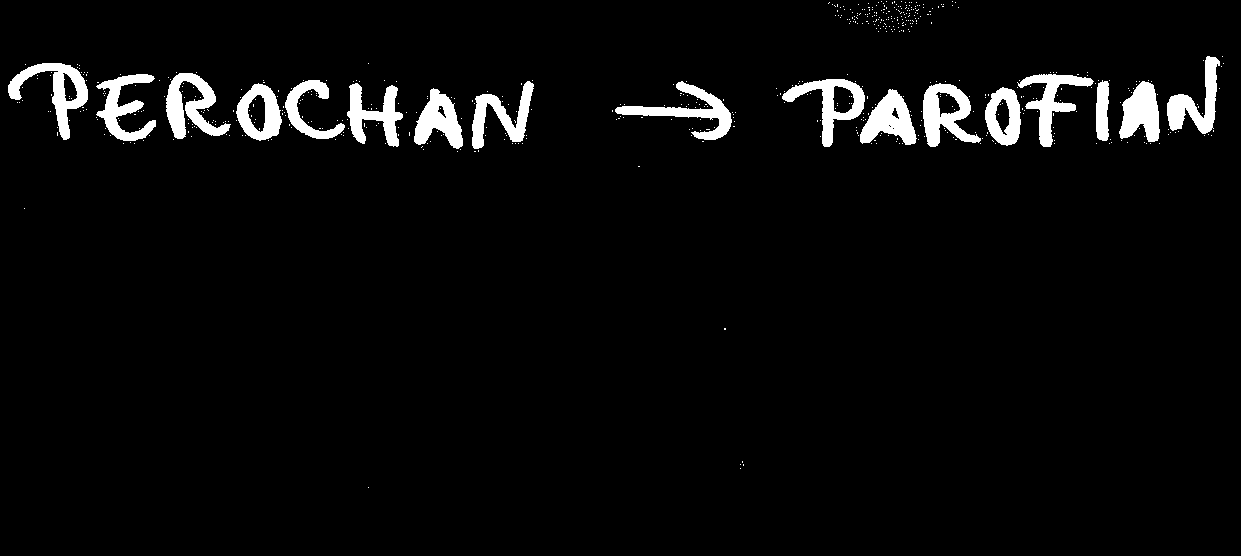 PEROCHAN → PAROFIAN